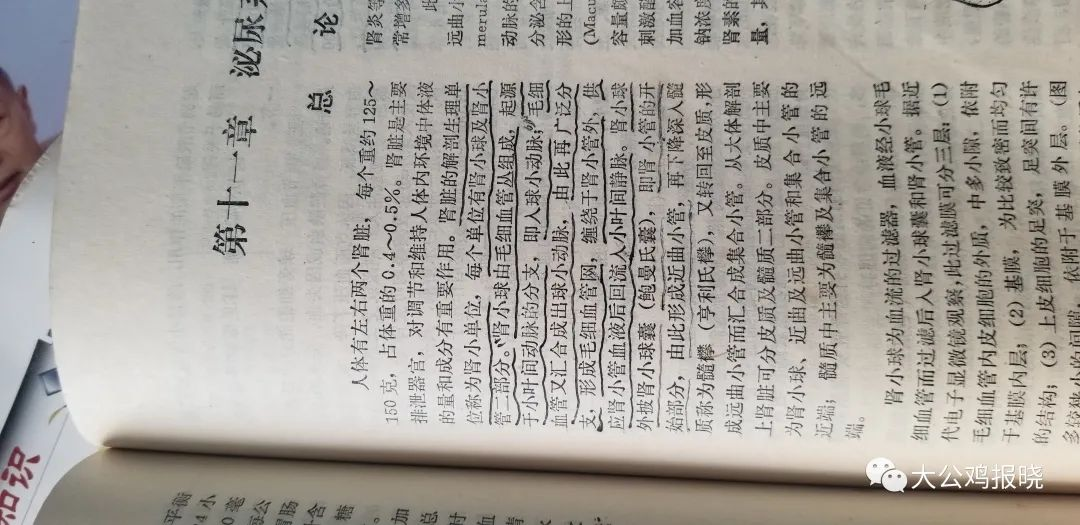 第十一章 泌尿
总 论
人体有左右两个肾脏，每个重约125～
150克，占体重的0.4～0.5%。肾脏是主要
排泄器官，对调节和维持人体内环境中体液
的量和成分有重要作用。肾脏的解剖生理单
位称为肾小单位，每个单位有肾小球及肾小
管二部分。肾小球由毛细血管丛组成，起源
于小叶间动脉的分支，即入球小动脉；毛细
血管又汇合成出球小动脉，由此再广泛分
支，形成毛细血管网，缠绕于肾小管外，供
应肾小管血液后回流入小叶间静脉。肾小球
外披肾小球囊（鲍曼氏囊），即肾小管的开
始部分，由此形成近曲小管，再下降深入髓
质称为髓襻（亨利氏襻），又转回至皮质，形
成远曲小管而汇合成集合小管。从大体解剖
上肾脏可分皮质及髓质二部分。皮质中主要
为肾小球、近曲及远曲小管和集合小管的
近端；髓质中主要为髓襻及集合小管的远
端。
肾小球为血流的过滤器，血液经小球毛
细血管而过滤后入肾小球囊和肾小管。据近
代电子显微镜观察，此过滤膜可分三层：(1)
毛细血管内皮细胞的外质，中多小隙，依附
于基膜内层；(2)基膜，为比较致密而均匀
的结构；(3)上皮细胞的足突，足突间有许
多较狭小的间隙，依附于基膜外层。(图
肾炎等
常增多
此
远曲小
merula
动脉的
分泌含
形的上
(Macu
容量颇
刺激
加血容
钠浓度
肾素的
量，其
知识
大公鸡报晓